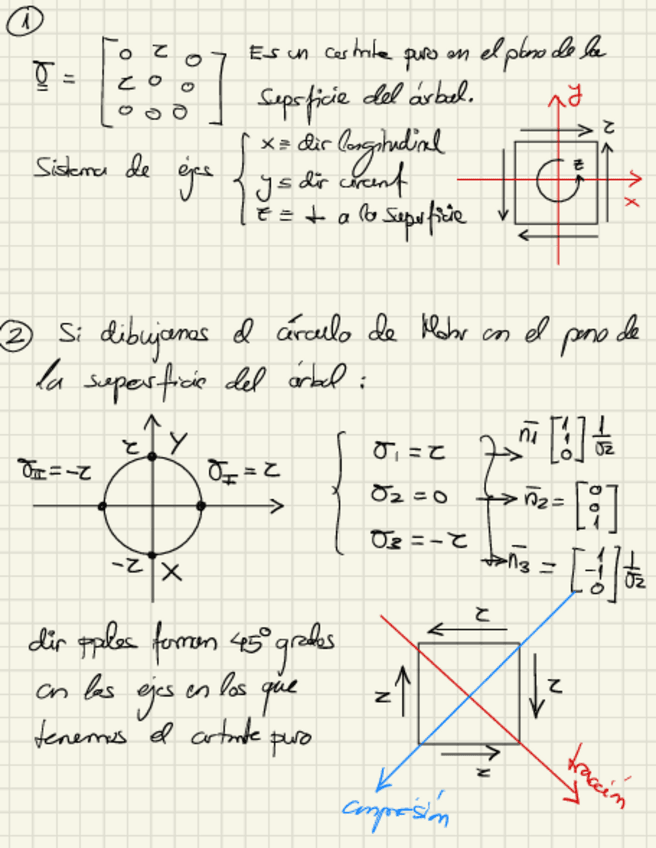 ①
σ = [0 τ 0
τ 0 0
0 0 0]
Es un cortante puro en el plano de la
superficie del árbol.
Sistema de ejes { x ≡ dir longitudinal
y ≡ dir circunf
z ≡ ⊥ a la superficie
y
τ
z
x
② Si dibujamos el círculo de Mohr en el plano de
la superficie del árbol:
τ Y
σII = -τ
σI = τ
-τ X
σ1 = τ → n̄1 [1 1 0] 1/√2
σ2 = 0 → n̄2 = [0 0 1]
σ3 = -τ → n̄3 = [-1 -1 0] 1/√2
dir pples forman 45º grados
con los ejes en los que
tenemos el cortante puro
τ
τ
τ
τ
tracción
compresión